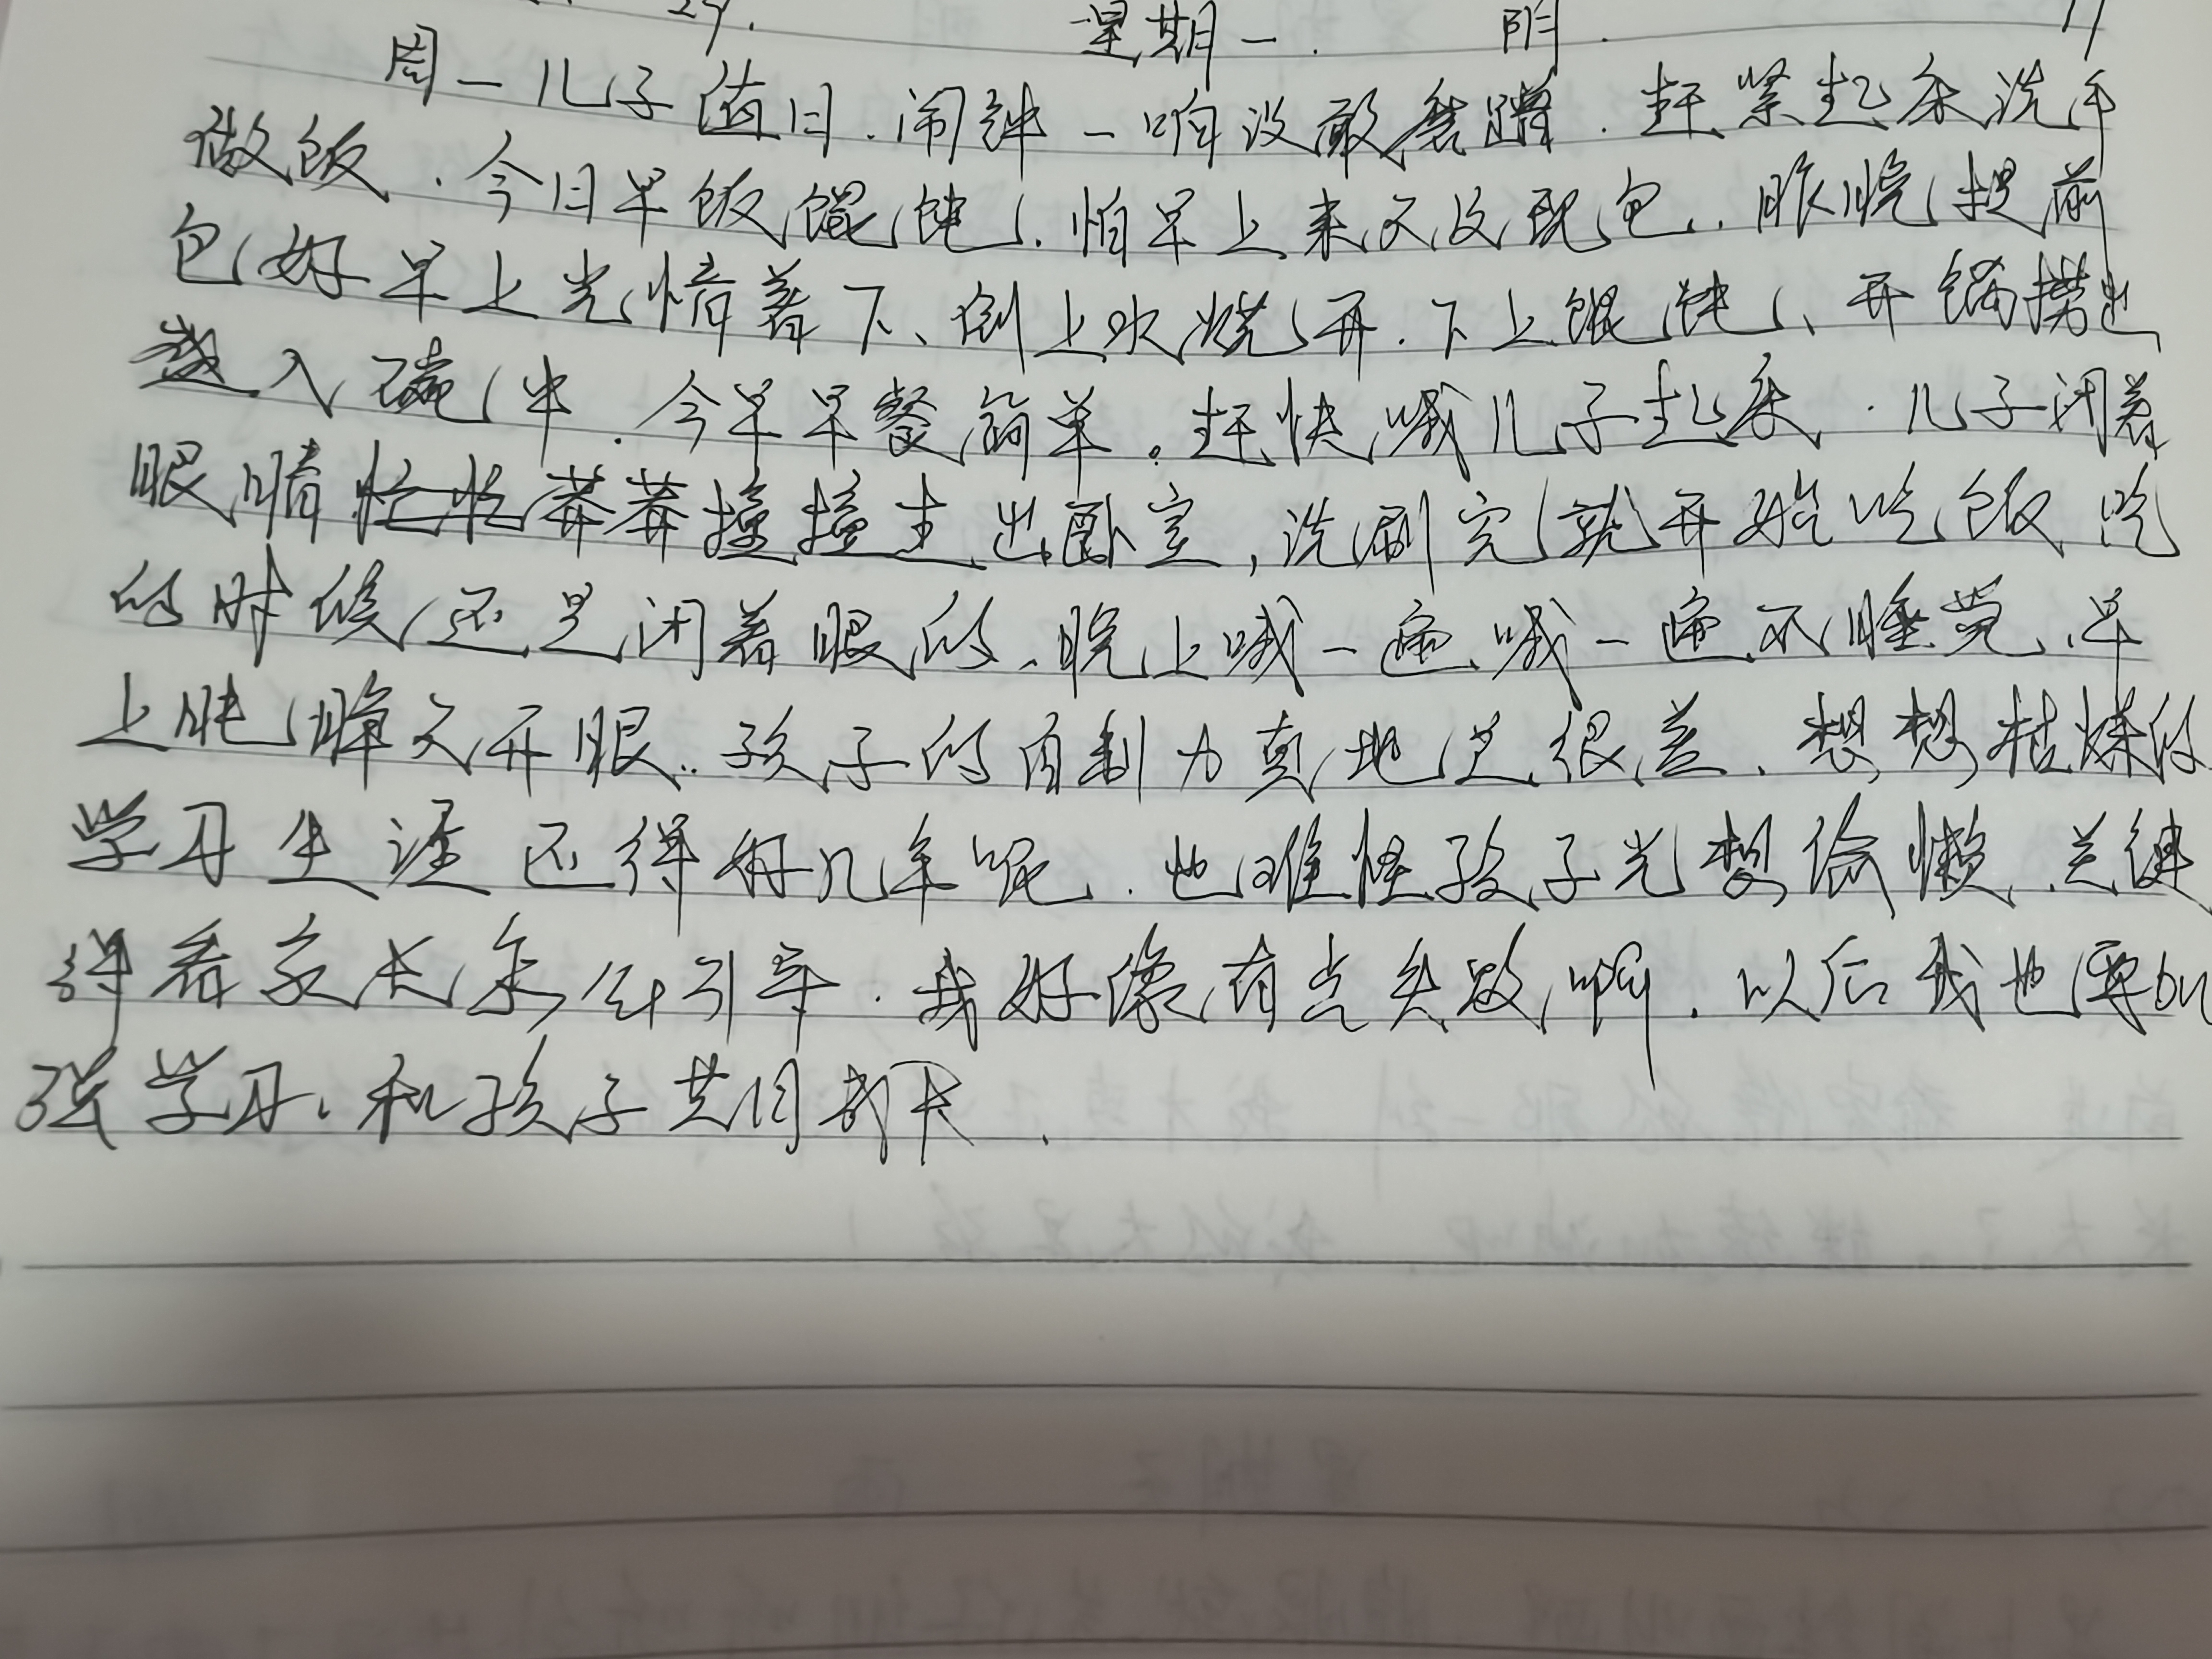 29. 星期一. 阴.
周一儿子值日.闹钟一响没敢磨蹭.赶紧起来洗手
做饭.今日早饭馄饨.怕早上来不及现包.昨晚提前
包好早上光情着下、倒上水烧开.下上馄饨、开锅捞出
盛入碗中.今早早餐简单。赶快喊儿子起来.儿子闭着
眼睛莽莽撞撞走出卧室,洗刷完就开始吃饭吃
的时候还是闭着眼的.晚上喊一遍喊一遍不睡觉.早
上困睁不开眼..孩子的自制力真地是很差.想想枯燥的
学习生涯还得好几年呢.也难怪孩子光想偷懒.关键
得看家长怎么引导.我好像有点失败啊.以后我也要加
强学习.和孩子共同成长.